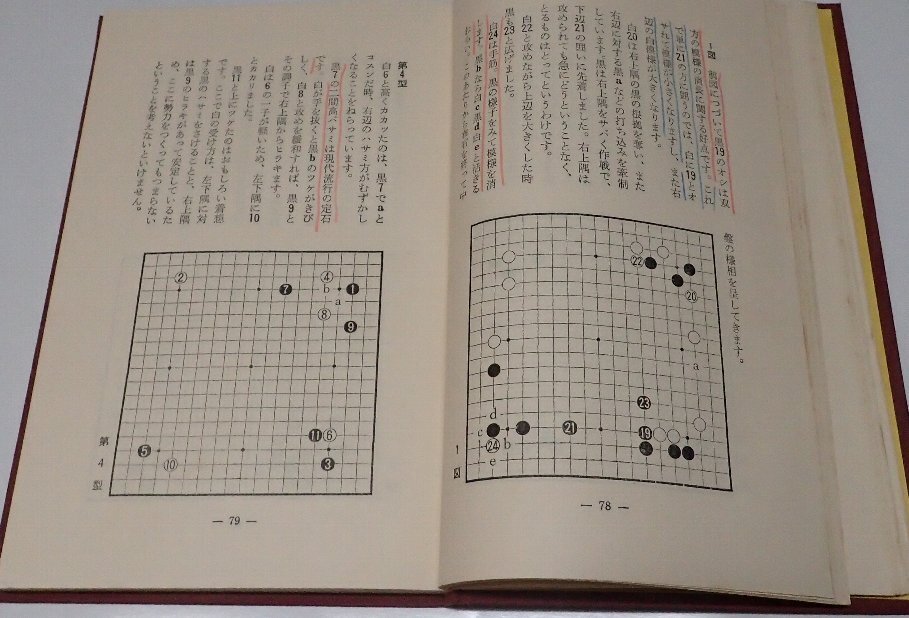 1図 譜図につづいて黒19のオシは双
方の模様の消長に関する好点です。これ
で単に21の方に囲うのでは、白に19とオ
されて黒模様が小さくなりますし、また右
辺の白模様が大きくなります。
白20は右上隅の黒の根拠を奪い、また
右辺に対する黒aなどの打ち込みを牽制
しています。黒は右上隅をサバく作戦で、
下辺21の囲いに先着しました。右上隅は
攻められても急にどうということなく、
とるものはとってというわけです。
白22と攻めながら上辺を大きくした時
黒も23と広げました。
白24は手筋、黒の様子をみて模様を消
します。黒bなら白c黒d白eと活きる
盤の様相を呈してきます。
22
20
a
23
21
19
d
c
b
24
e
1図
— 78 —
第4型
白6と高くカカッたのは、黒7でaと
コスンだ時、右辺のハサミ方がむずかし
くなることをねらっています。
黒7の二間高バサミは現代流行の定石
です。白が手を抜くと黒bのツケがきび
しく、白8と攻めを緩和すれば、黒9と
その調子で右上隅からヒラキます。
白は6の一子が軽いため、左下隅に10
とカカリました。
黒11と上にツケたのはおもしろい着想
です。ここで白の受け方は、左下隅に対
する黒のハサミをさけることと、右上隅
は黒9のヒラキがあって安定しているた
め、ここに勢力をつくってもつまらない
ということを考えないといけません。
2
4
7
b
1
a
8
9
11
6
5
10
3
第4型
— 79 —